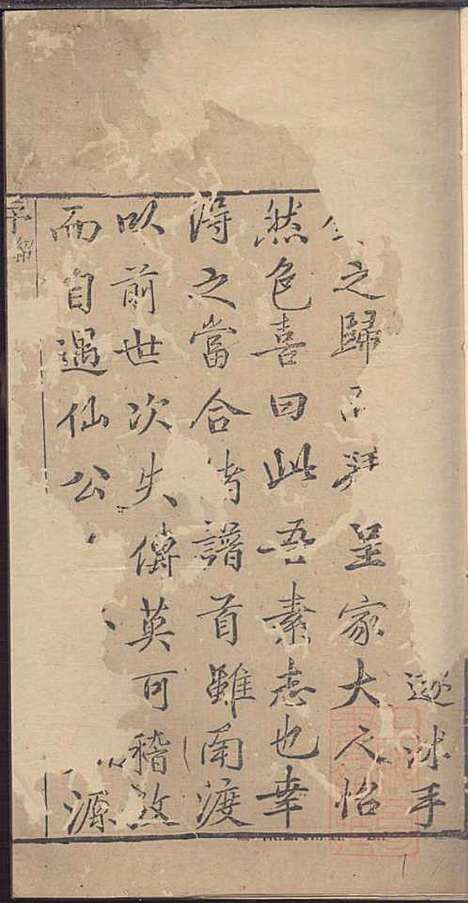 遂沐手
之歸 拜呈家大人怡
然色喜曰此吾素志也幸
得之當合 譜首雖南渡
以前世次失傳莫可稽攷
而自遇仙公 源